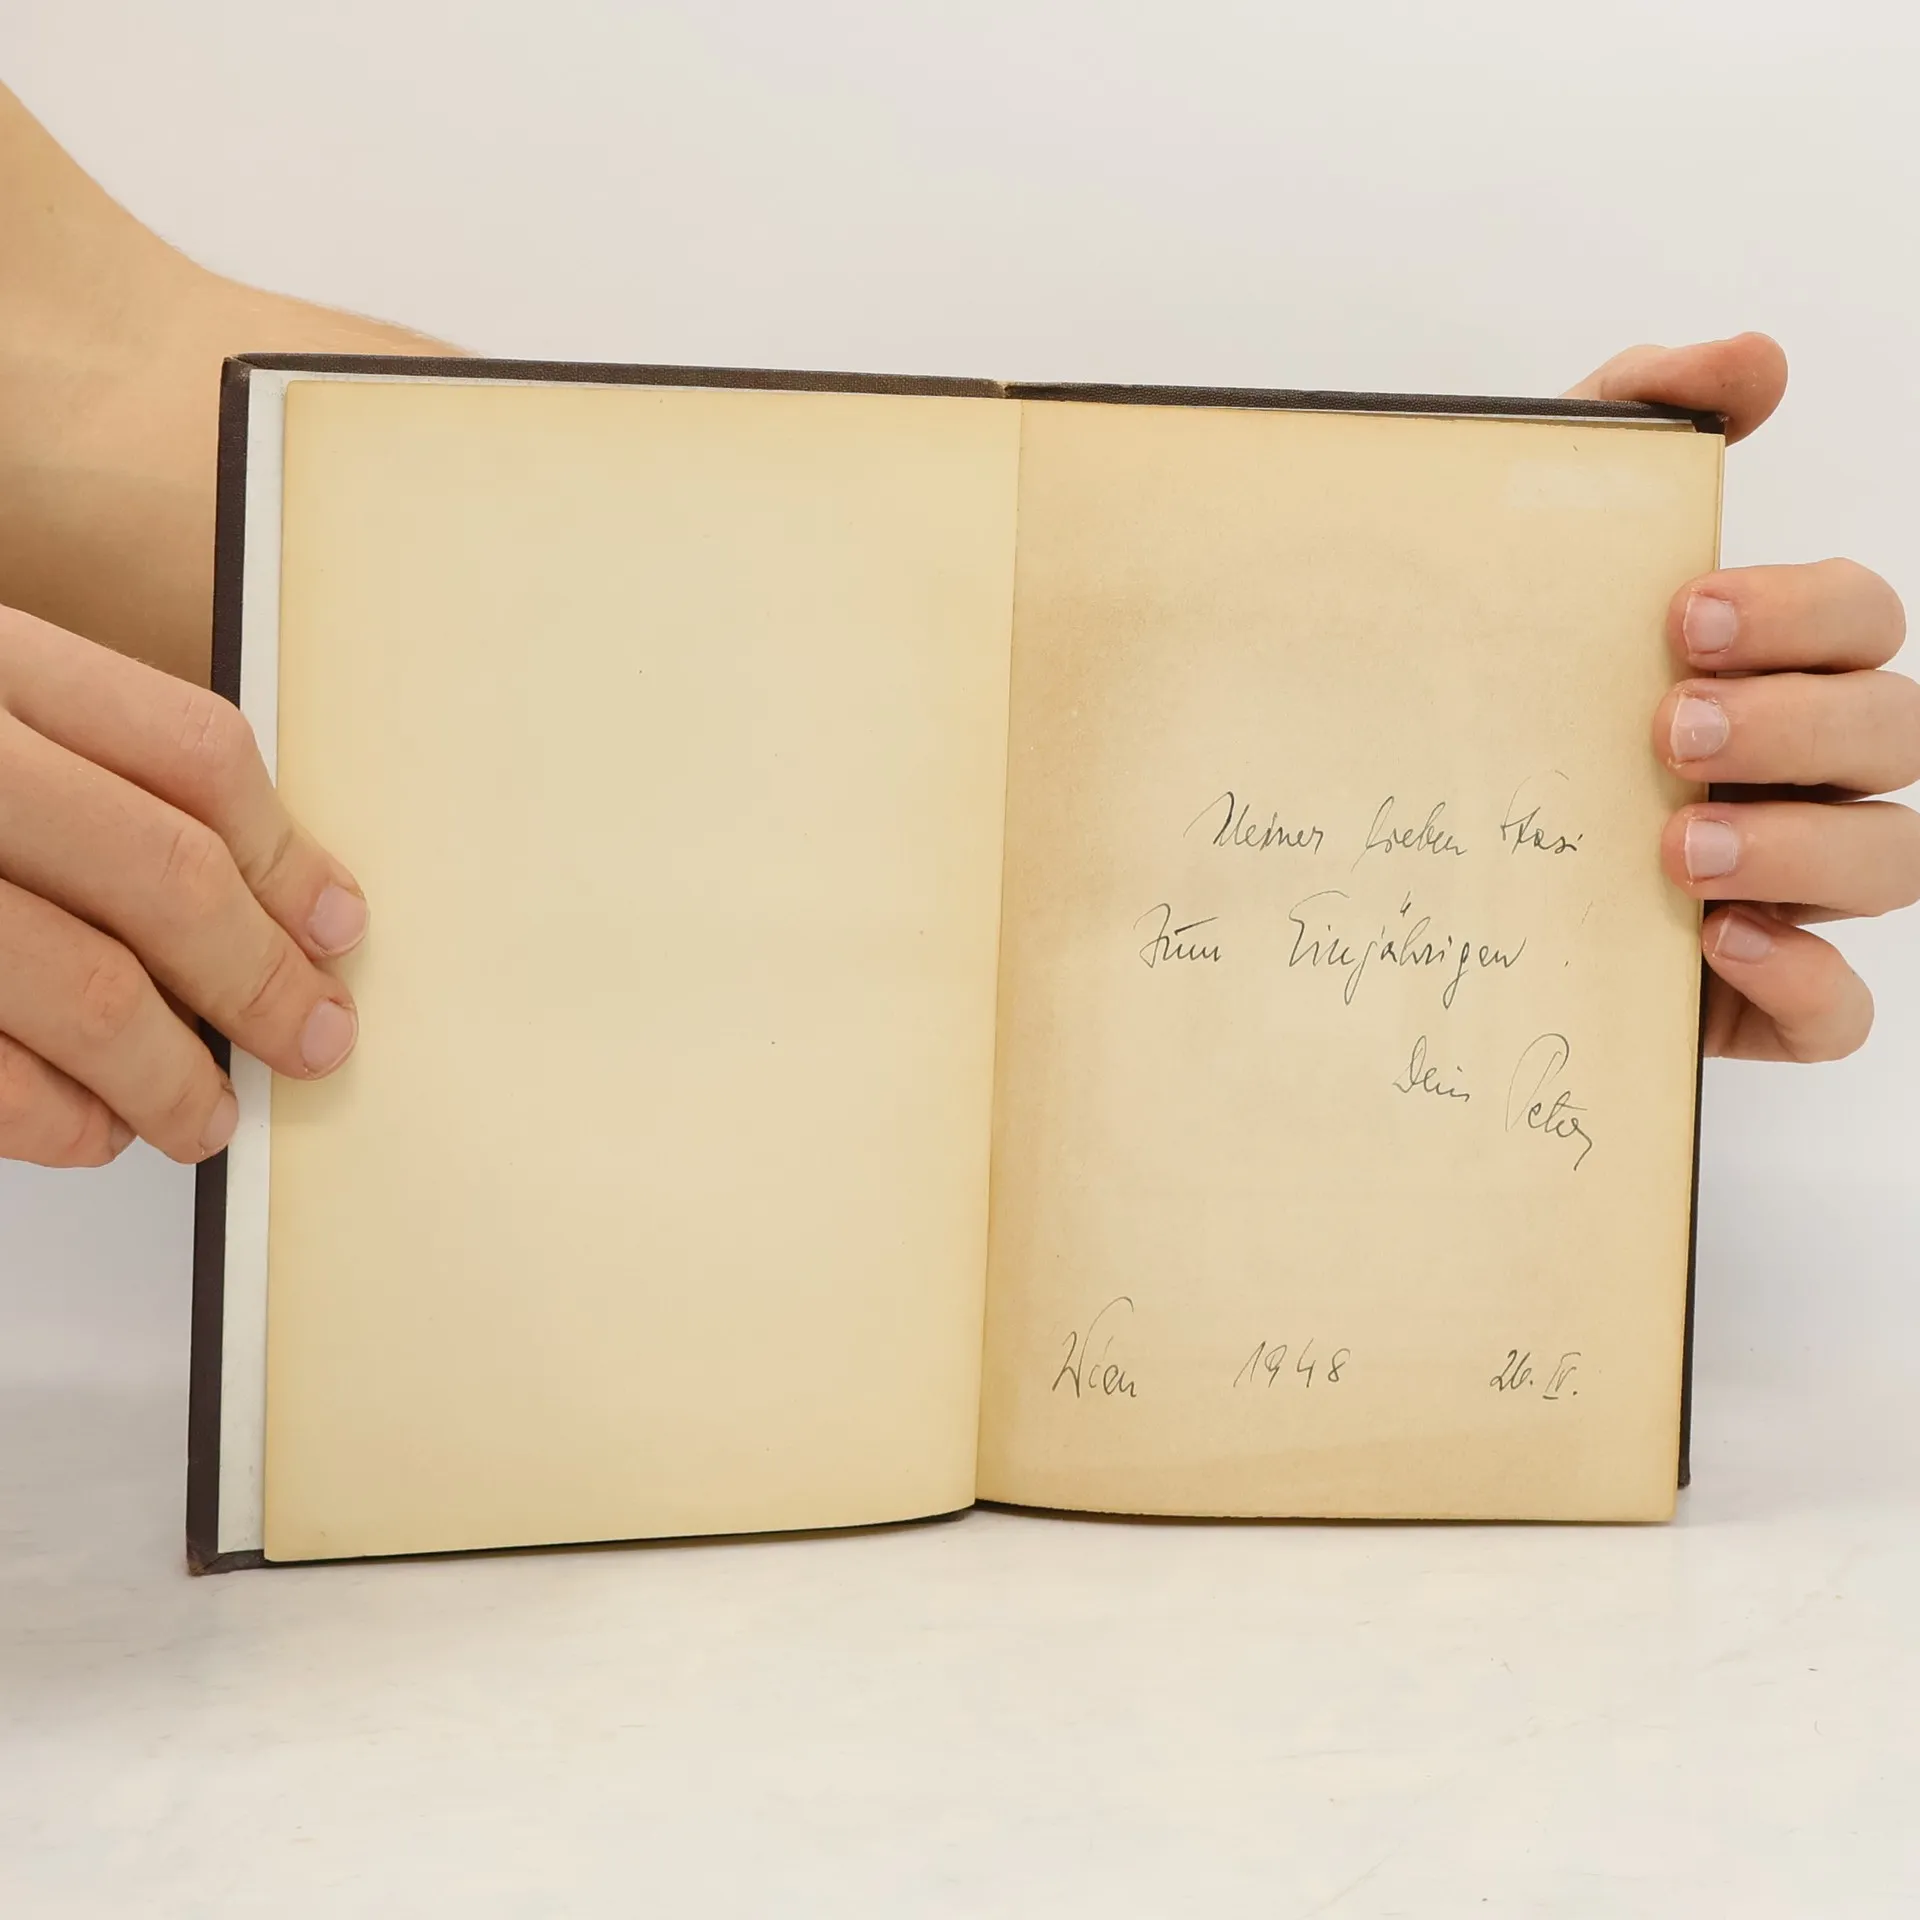 Meiner lieben Stasi
zum Einjährigen !
Dein Peter
Wien 1948 26. IV.